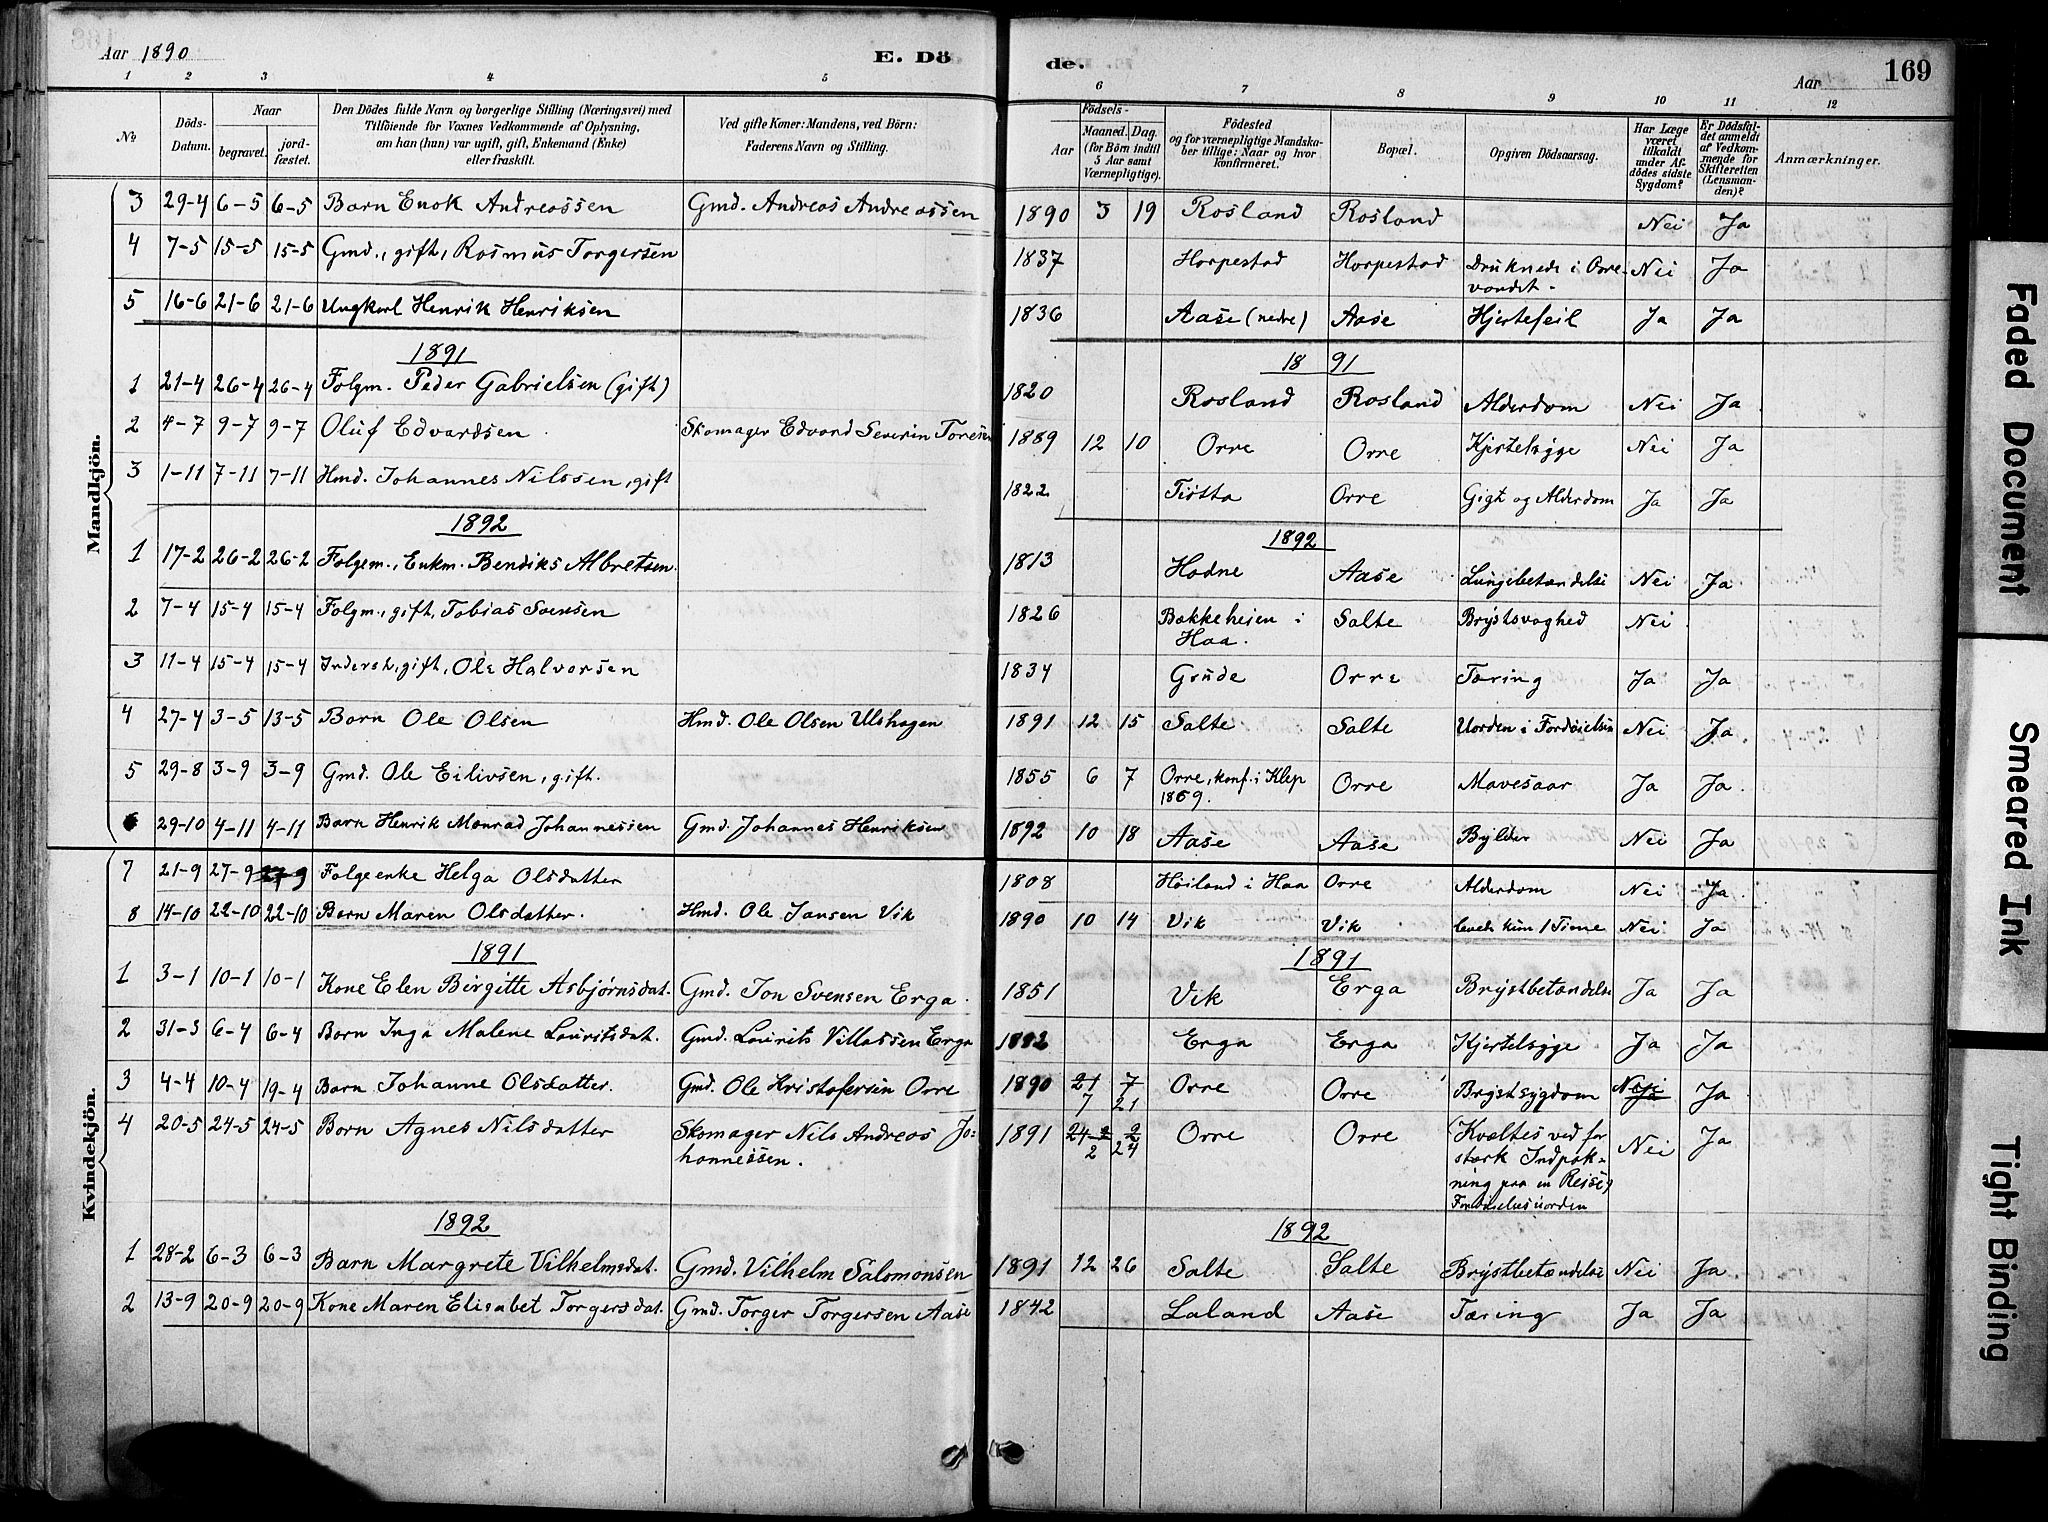 Aar 1890
E. Dö
de.
Aar
169
1 2 3 4 5 6 7 8 9 10 11 12
No
Döds-Datum.
Naar
begravet.
jordfæstet.
Den Dödes fulde Navn og borgerlige Stilling (Næringsvei) med
Tilföiende for Voxnes Vedkommende af Oplysning,
om han (hun) var ugift, gift, Enkemand (Enke)
eller fraskilt.
Ved gifte Koner: Mandens, ved Börn:
Faderens Navn og Stilling.
Födsels-
Aar
Maaned. Dag.
(for Börn indtil
5 Aar samt
Værnepligtige).
Födested
og for værnepligtige Mandska-
ber tillige: Naar og hvor
konfirmeret.
Bopæl.
Opgiven Dödsaarsag.
Har Læge
været
tilkaldt
under Af-
dödes sidste
Sygdom?
Er Dödsfal-
det anmeldt
af Vedkom-
mende for
Skifteretten
(Lensman-
den)?
Anmærkninger.
Mandkjön.
3 29-4 6-5 6-5 Barn Enok Andreassen Gmd. Andreas Andreassen 1890 3 19 Rosland Rosland Nei Ja
4 7-5 15-5 15-5 Gmd., gift, Rasmus Torgersen 1837 Horpestad Horpestad Druknede i Orre- Nei Ja
vandet.
5 16-6 21-6 21-6 Ungkarl Henrik Henriksen 1836 Aase (nedre) Aase Hjertefeil Ja Ja
1891 18 91
1 21-4 26-4 26-4 Folgm. Peder Gabrielsen (gift) 1820 Rosland Rosland Alderdom Nei Ja
2 4-7 9-7 9-7 Oluf Edvardsen Skomager Edvard Severin Toresen 1889 12 10 Orre Orre Kjertelsyge Nei Ja
3 1-11 7-11 7-11 Hmd. Johannes Nilssen, gift 1822 Tjøtta Orre Gigt og Alderdom Ja Ja
1892 1892
1 17-2 26-2 26-2 Folgem., Enkm. Bendiks Albretsen 1813 Hodne Aase Lungebetændelse Nei Ja
2 7-4 15-4 15-4 Folgm., gift, Tobias Svensen 1826 Bakkeheien i Salte Brystsvaghed Nei
Haa.
3 11-4 15-4 15-4 Inderst, gift, Ole Halvorsen 1834 Grude Orre Tæring Ja Ja
4 27-4 3-5 13-5 Barn Ole Olsen Hmd. Ole Olsen Ulshagen 1891 12 15 Salte Salte Uorden i Fordøielsen Nei Ja
5 29-8 3-9 3-9 Gmd. Ole Eilivsen, gift. 1855 6 7 Orre, konf. i Klep Orre Mavesaar Ja Ja
1869.
6 29-10 4-11 4-11 Barn Henrik Monrad Johannessen Gmd. Johannes Henriksen 1892 10 18 Aase Aase Bylder Nei Ja
Kvindekjön.
7 21-9 27-9 27-9 Folgeenke Helga Olsdatter 1808 Høiland i Haa Orre Alderdom Nei Ja
8 14-10 22-10 22-10 Barn Maren Olsdatter. Hmd. Ole Jansen Vik 1890 10 14 Vik Vik levede kun 1 Time Nei Ja
1891 1891
1 3-1 10-1 10-1 Kone Elen Birgitte Asbjørnsdat. Gmd. Jon Svensen Erga. 1851 Vik Erga Brystbetændelse Ja Ja
2 31-3 6-4 6-4 Barn Inga Malene Lauritsdat. Gmd. Laurits Villassen Erga 1882 Erga Erga Kjertelsyge Ja Ja
3 4-4 10-4 19-4 Barn Johanne Olsdatter. Gmd. Ole Kristofersen Orre 1890 21 7 Orre Orre Brystsygdom Nei Ja
7 21
4 20-5 24-5 24-5 Barn Agnes Nilsdatter Skomager Nils Andreas Jo- 1891 24-2 2 Orre Orre (Kvaltes ved for Nei Ja
hannessen. 2 24 stærk Indpak-
ning paa en Reise)
Fordøielsesuorden
1892 1892
1 28-2 6-3 6-3 Barn Margrete Vilhelmsdat. Gmd. Vilhelm Salomonsen 1891 12 26 Salte Salte Brystbetændelse Nei Ja
2 13-9 20-9 20-9 Kone Maren Elisabet Torgersdat. Gmd. Torger Torgersen Aase 1842 Laland Aase Tæring Ja Ja
Faded Document
Smeared Ink
Tight Binding